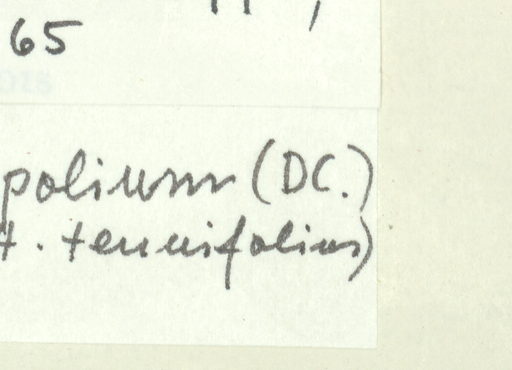 65
polium (DC.)
t. tenuifolius)